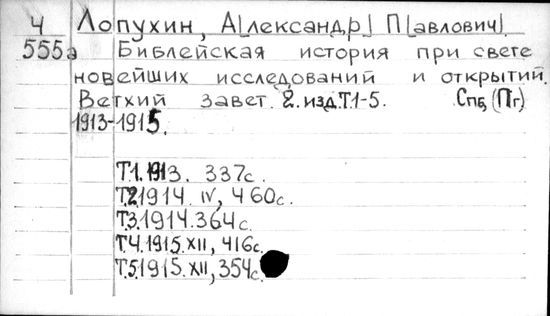 Ч Лопухин, А[лександр] П[авлович].
555а Библейская история при свете
новейших исследований и открытий.
Ветхий завет. 2. изд. Т.1-5. Спб, (Пг)
1913-1915.
Т.1.1913. 337с.
Т.2.1914. IV, 460с.
Т.3.1914.364с.
Т.4.1915.XII, 416с.
Т.5.1915.XII, 354с.